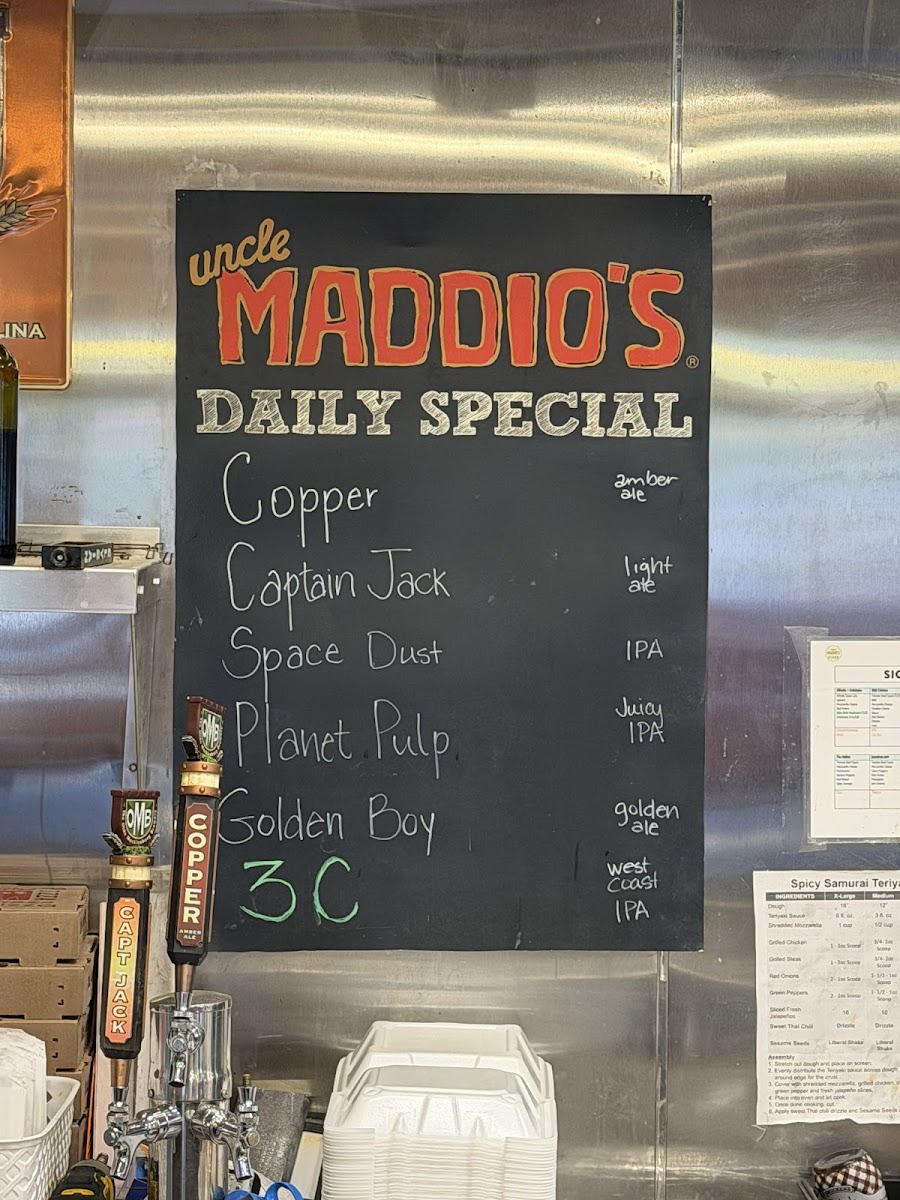 uncle
MADDIO'S®
DAILY SPECIAL
Copper amber ale
Captain Jack light ale
Space Dust IPA
Planet Pulp Juicy IPA
Golden Boy golden ale
3C west coast IPA
INA
OMB
COPPER
AMBER ALE
OMB
CAPT JACK
SIG
Spicy Samurai Teriya
INGREDIENTS X-Large Medium
Dough 16" 12"
Teriyaki Sauce 6 fl. oz. 3 fl. oz
Shredded Mozzarella 1 cup 1/2 cup
Grilled Chicken
Grilled Steak
Red Onions
Green Peppers
Sliced Fresh Jalapeños 16 10
Sweet Thai Chili Drizzle Drizzle
Sesame Seeds Liberal Shake Liberal Shake
Assembly
1. Stretch out dough and place on screen.
2. Evenly distribute the Teriyaki sauce across dough
around edge for the crust
3. Cover with shredded mozzarella, grilled chicken,
green pepper and fresh jalapeño slices.
4. Place into oven and let cook.
5. Once done cooking, cut.
6. Apply sweet Thai chili drizzle and Sesame Seeds